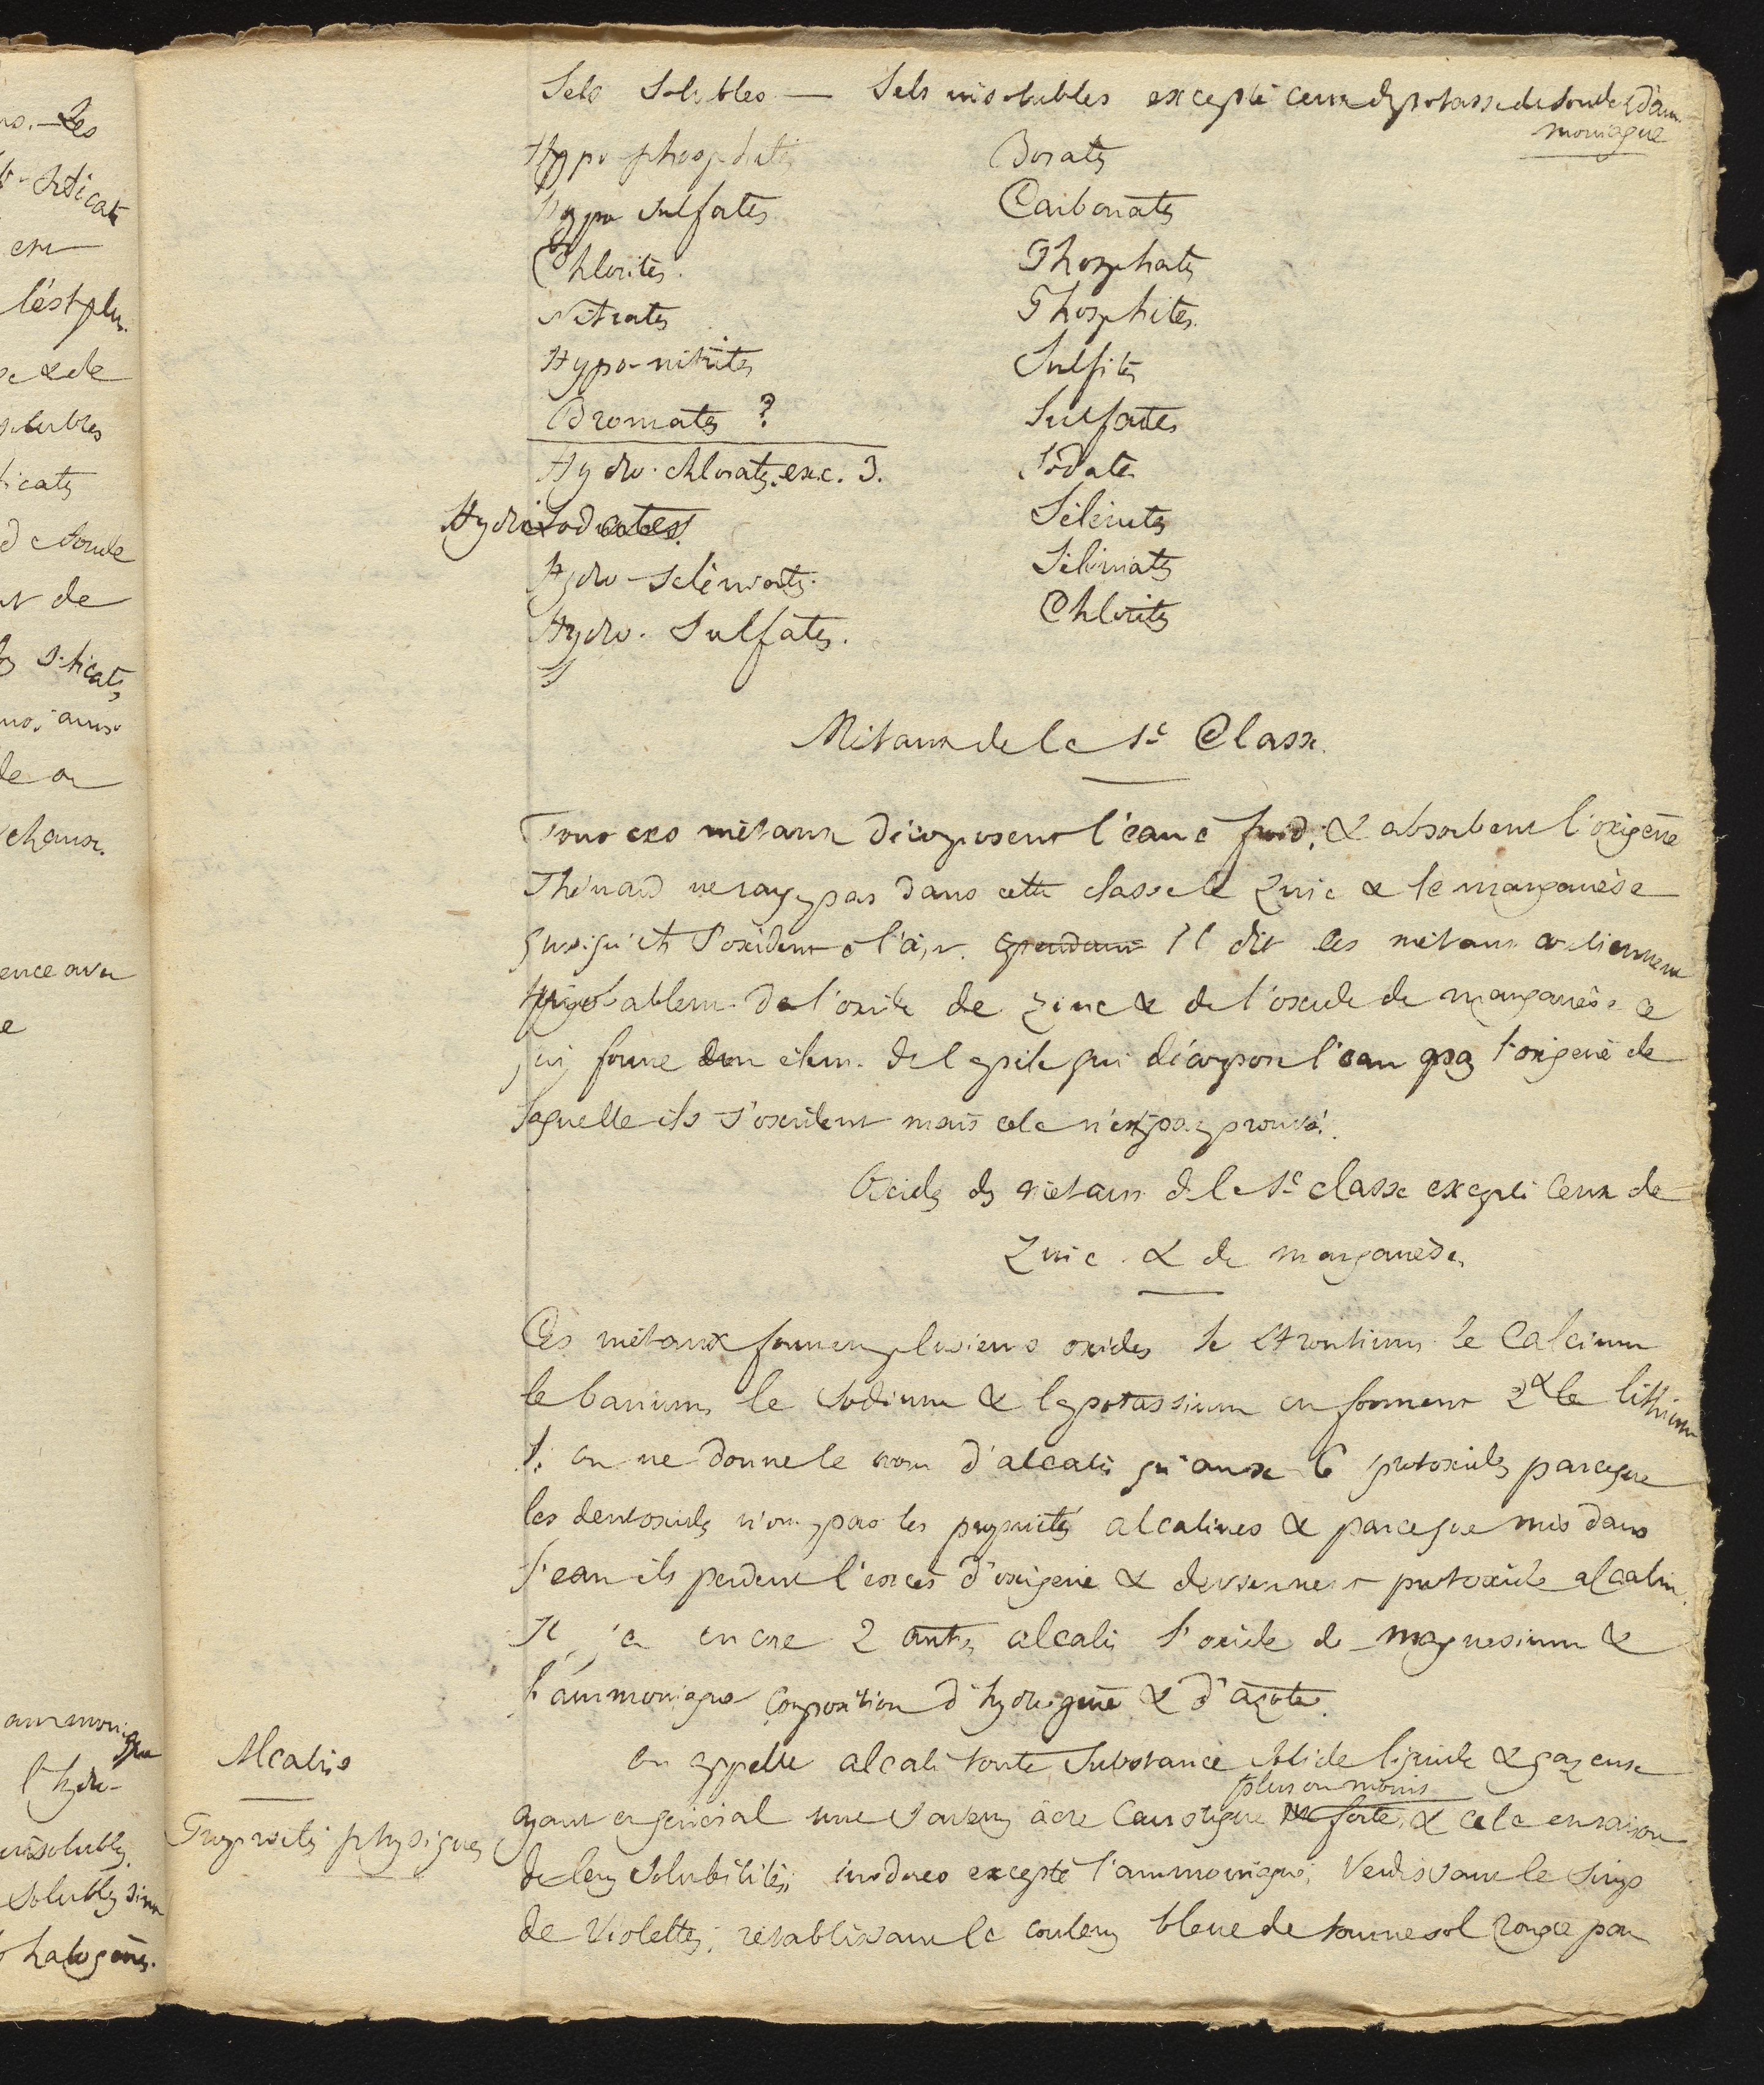 Sels Solubles — Sels insolubles excepté ceux de potasse de soude & d'am
moniaque
Hypo phosphites Borates
hypo sulfates Carbonates
Chlorites. Phosphates
Nitrates Phosphites.
Hypo-nitrites Sulfites
Bromates ? Sulfates
Hydro-chlorates. exc. 3. Iodates
Hydriodates Sélénites
Hydro-séléniates. Séléniates
Hydro-Sulfates. Chlorites
Métaux de la 1e Classe.
Tous ces métaux décomposent l'eau à froid, & absorbent l'oxigène
Thénard ne range pas dans cette classe le Zinc & le manganèse
quoiqu'ils s'oxident à l'air. cependant Il dit ces métaux contiennent
probablem. de l'oxide de zinc & de l'oxide de manganèse ce
qui forme un élem. de la pile qui décompose l'eau par l'oxigène de
laquelle ils s'oxident mais cela n'est pas prouvé.
Oxides des métaux de la 1e classe excepté ceux de
Zinc & de manganèse.
Ces métaux forment plusieurs oxides le strontium le Calcium
le barium, le sodium & le potassium en forment 2 & le lithium
1. on ne donne le nom d'alcalis qu'aux 6 protoxides parceque
les deutoxides n'ont pas les propriétés alcalines & parceque mis dans
l'eau ils perdent l'excès d'oxigène & deviennent protoxide alcalin.
Il y a encore 2 autres alcalis l'oxide de magnesium &
l'ammoniaque composition d'hydrogène & d'azote.
Alcalis
on appelle alcali toute substance solide liquide & gazeuse
plus ou moins
ayant en général une saveur âcre caustique forte, & cela en raison
Propriétés physiques
de leur solubilité; inodores excepté l'ammoniaque; verdissant le sirop
de Violettes; rétablissant la couleur bleue de tournesol rougie par